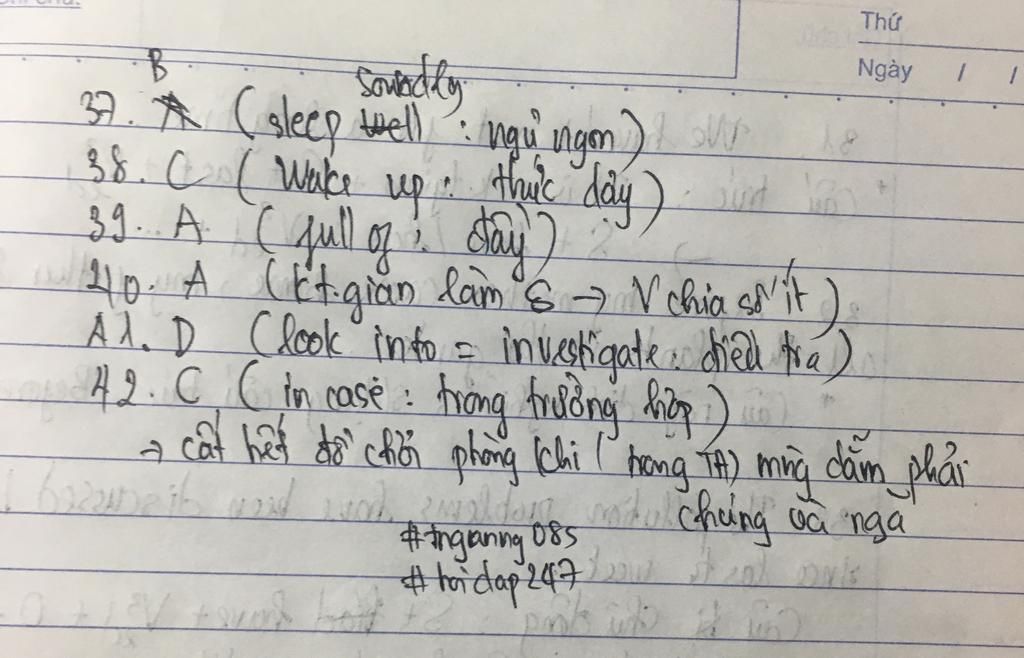 Thứ
Ngày / /
B
soundly
37. A (sleep well : ngủ ngon)
38. C (Wake up : thức dậy)
39. A (full of : đầy)
40. A (kt.gian làm S → V chia số ít)
41. D (look into = investigate : điều tra)
42. C (in case : trong trường hợp)
→ cất hết đồ chơi phòng khi (trong TA) mng dẫm phải
chúng và ngã
#tnganng08s
#hoidap247